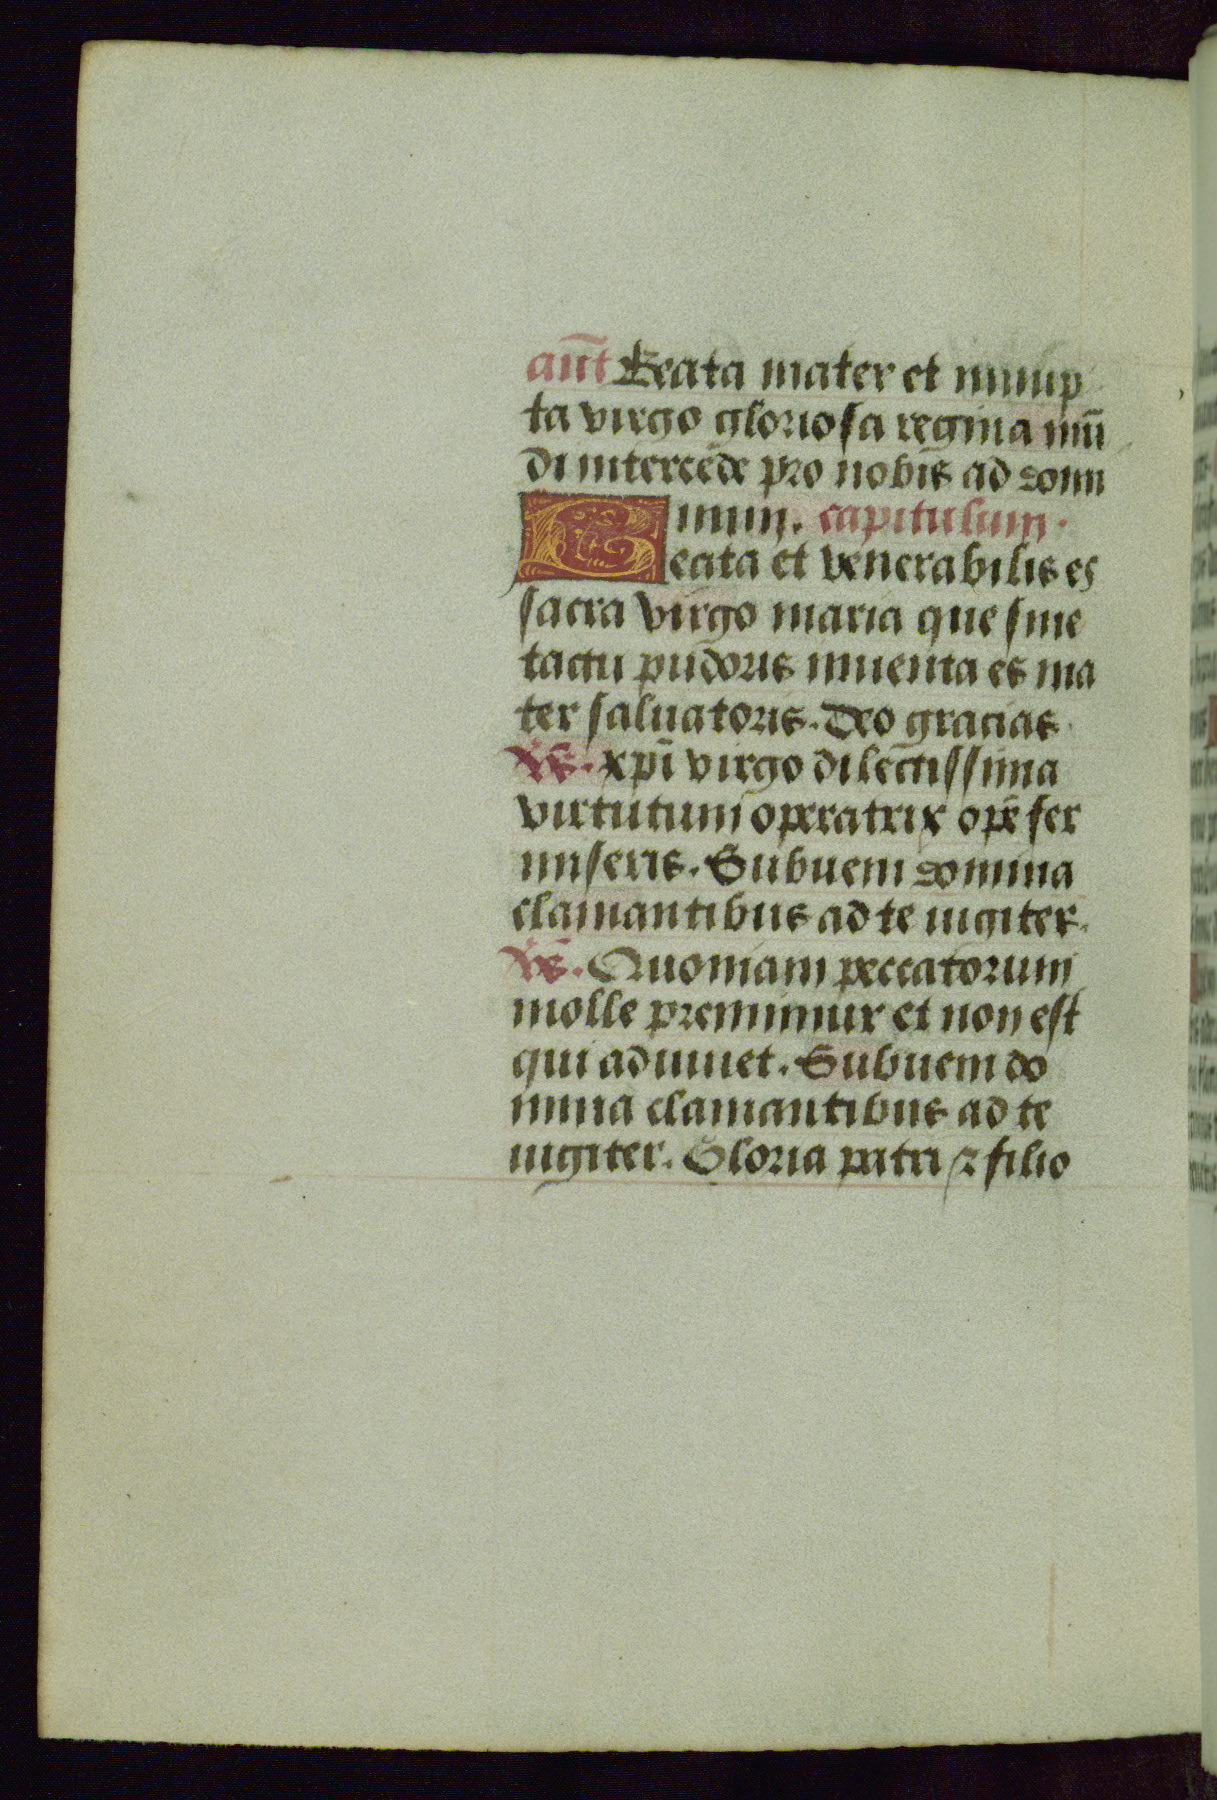 añt Beata mater et innup
ta virgo gloriosa regina mũ
di intercede pro nobis ad domi
num. capitulum.
Beata et venerabilis es
sacra virgo maria que sine
tactu pudoris inuenta es ma
ter saluatoris. Deo gracias
R̃s. xp̄i virgo dilectissima
virtutum operatrix opē fer
miseris. Subueni domina
clamantibus ad te iugiter.
V̄s. Quoniam peccatorum
molle premimur et non est
qui adiuuet. Subueni do
mina clamantibus ad te
iugiter. Gloria patri ⁊ filio